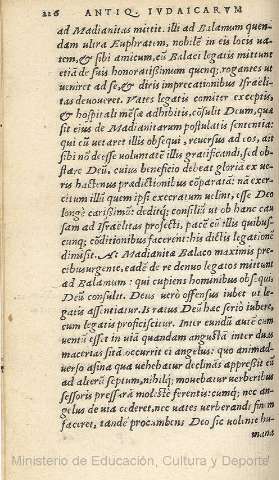 226 ANTIQ. IVDAICARVM
ad Madianitas mittit. illi ad Balamum quen-
dam ultra Euphratem, nobilẽ in eis locis ua-
tem, & sibi amicum, cũ Balaci legatis mittunt
etiã de suis honoratissimum quenq; rogantes ut
ueniret ad se, & diris imprecationibus Israëli-
tas deuoueret. Vates legatis comiter exceptis,
& hospitali mẽsa adhibitis, cõsulit Deum, quæ
sit eius de Madianitarum postulatis sententia:
qui cũ uetaret illis obsequi, reuersus ad eos, ait
sibi nõ deesse uoluntatẽ illis gratificandi, sed ob-
stare Deũ, cuius beneficio debeat gloriã ex ue-
ris hactenus prædictionibus cõparatã: nã exer-
citum illũ quem ipsi execratum uelint, esse Deo
longè carissimũ: deditq; consiliũ ut ob hanc cau-
sam ad Israëlitas profecti, pacẽ cũ illis quibus-
cunq; cõditionibus facerent: his dictis legationẽ
dimisit. At Madianitæ Balaco maximis pre-
cibus urgente, eadẽ de re denuo legatos mittunt
ad Balamum: qui cupiens hominibus obsequi,
Deũ consulit. Deus uerò offensus iubet ut le-
gatis assentiatur. Is ratus Deũ hæc seriò iubere,
cum legatis proficiscitur. Inter eundũ autẽ cum
uentũ esset in uia quandam angustã inter duas
macerias sitã occurrit ei angelus: quo animad-
uerso asina qua uehebatur declinãs appressit eũ
ad alterũ septum, nihilq; mouebatur uerberibus
sessoris pressarã molestè ferentis: cumq; nec an-
gelus de uia cederet, nec uates uerberandi finem
faceret, tandẽ procumbens Deo sic uolente hu-
mana
Ministerio de Educación, Cultura y Deporte